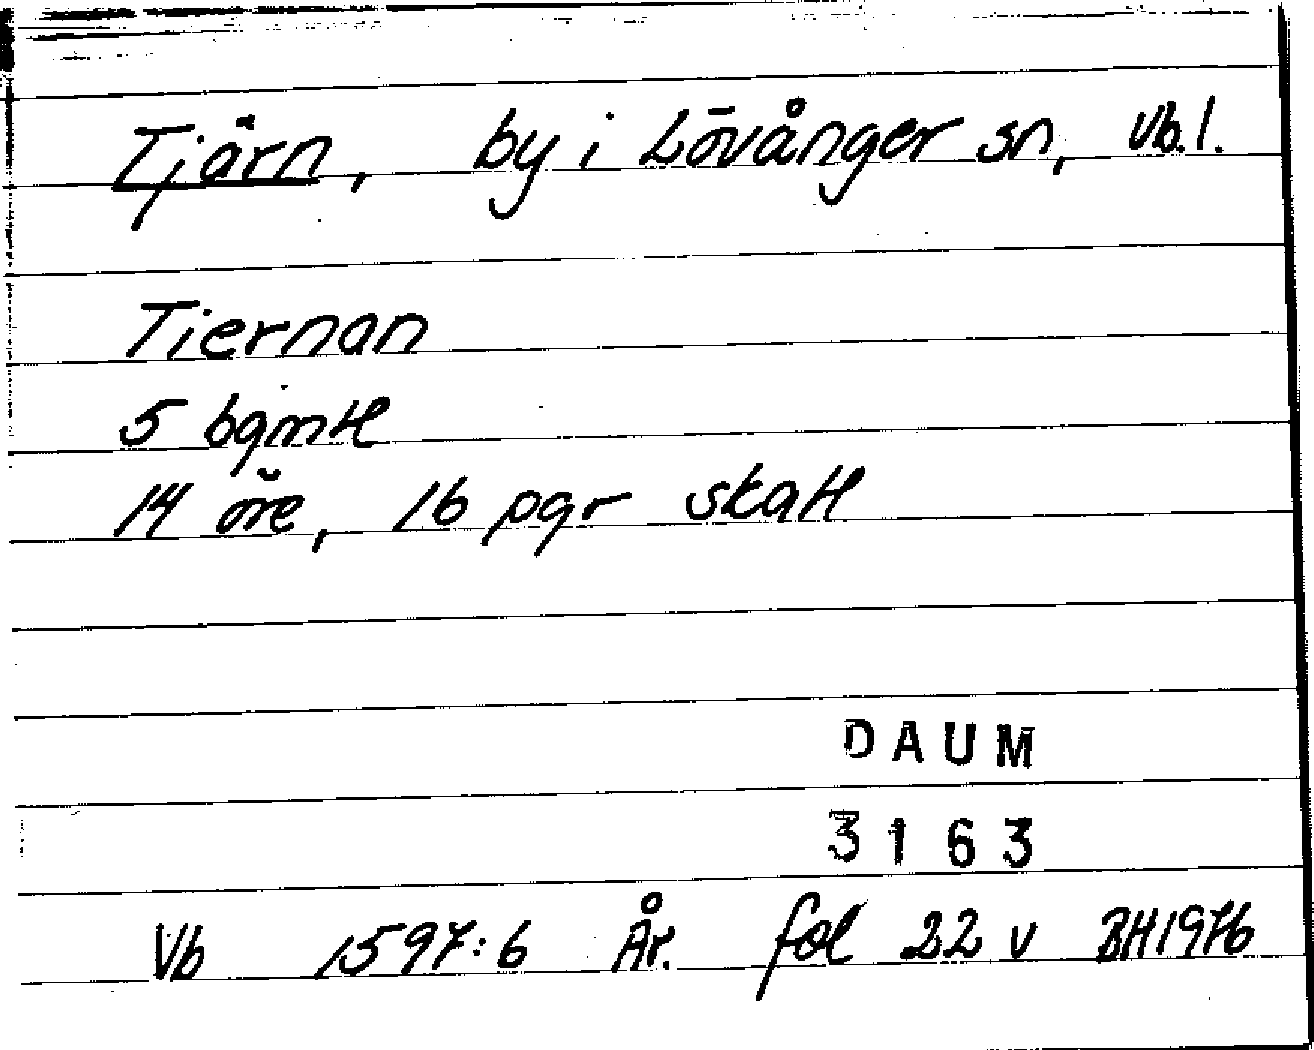 Tjärn, by i Lövånger sn, Vb.l.
Tiernan
5 bgmtl
14 öre, 16 pgr skatt
DAUM
3163
Vb 1597:6 År. fol 22 v BH1976